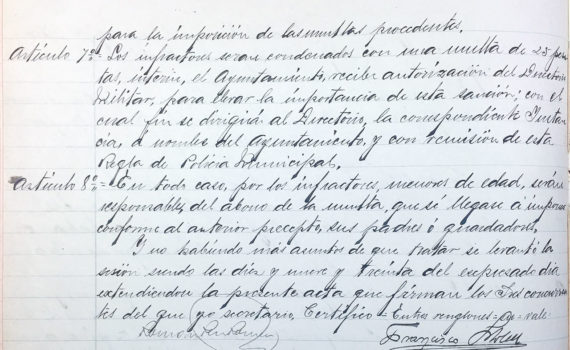 para la imposición de las multas procedentes.
Artículo 7º = Los infractores seran condenados con una multa de 25 pese-
tas, interin, el Ayuntamiento, recibe autorización del Directorio
Militar, para elevar la importancia de esta sanción; con el
cual fin se dirigirá al Directorio, la correspondiente Instan-
cia, á nombre del Ayuntamiento, y con remisión de esta
Regla de Policia Municipal.
Artículo 8º = En todo caso, por los infractores, menores de edad, serán
responsables del abono de la multa, que sé llegare á imponer
conforme al anterior precepto, sus padres ó guardadores.
Y no habiendo más asuntos de que tratar se levantó la
sesión siendo las diez y nueve y treinta del expresado dia
extendiendou la presente acta que firman los Sres concurren-
tes del que yo secretario, Certifico = Entre renglones = = vale =
Ramón Francisco